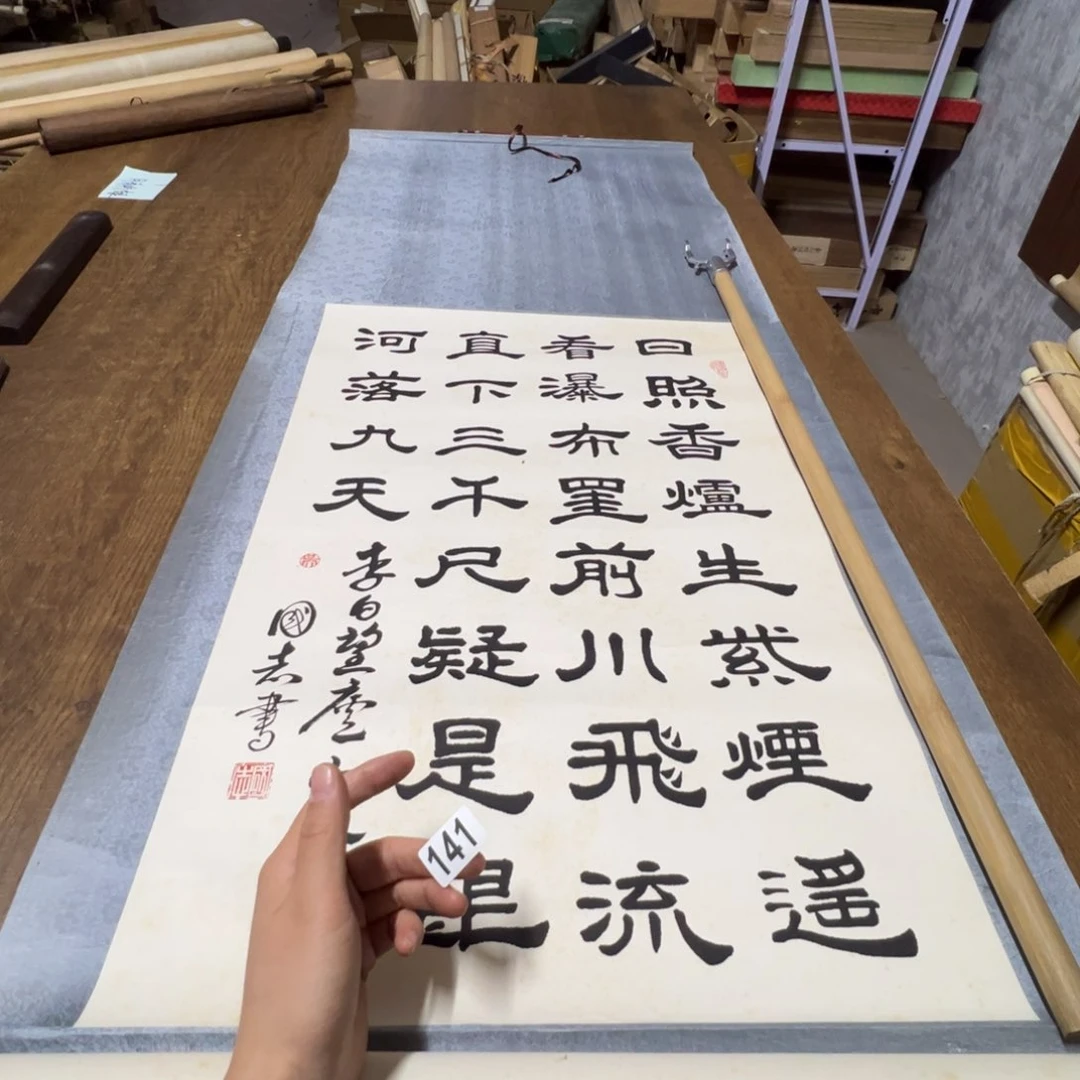 日照香爐生紫煙遙
看瀑布罣前川飛流
直下三千尺疑是
河落九天
李白望廬
國志書
141